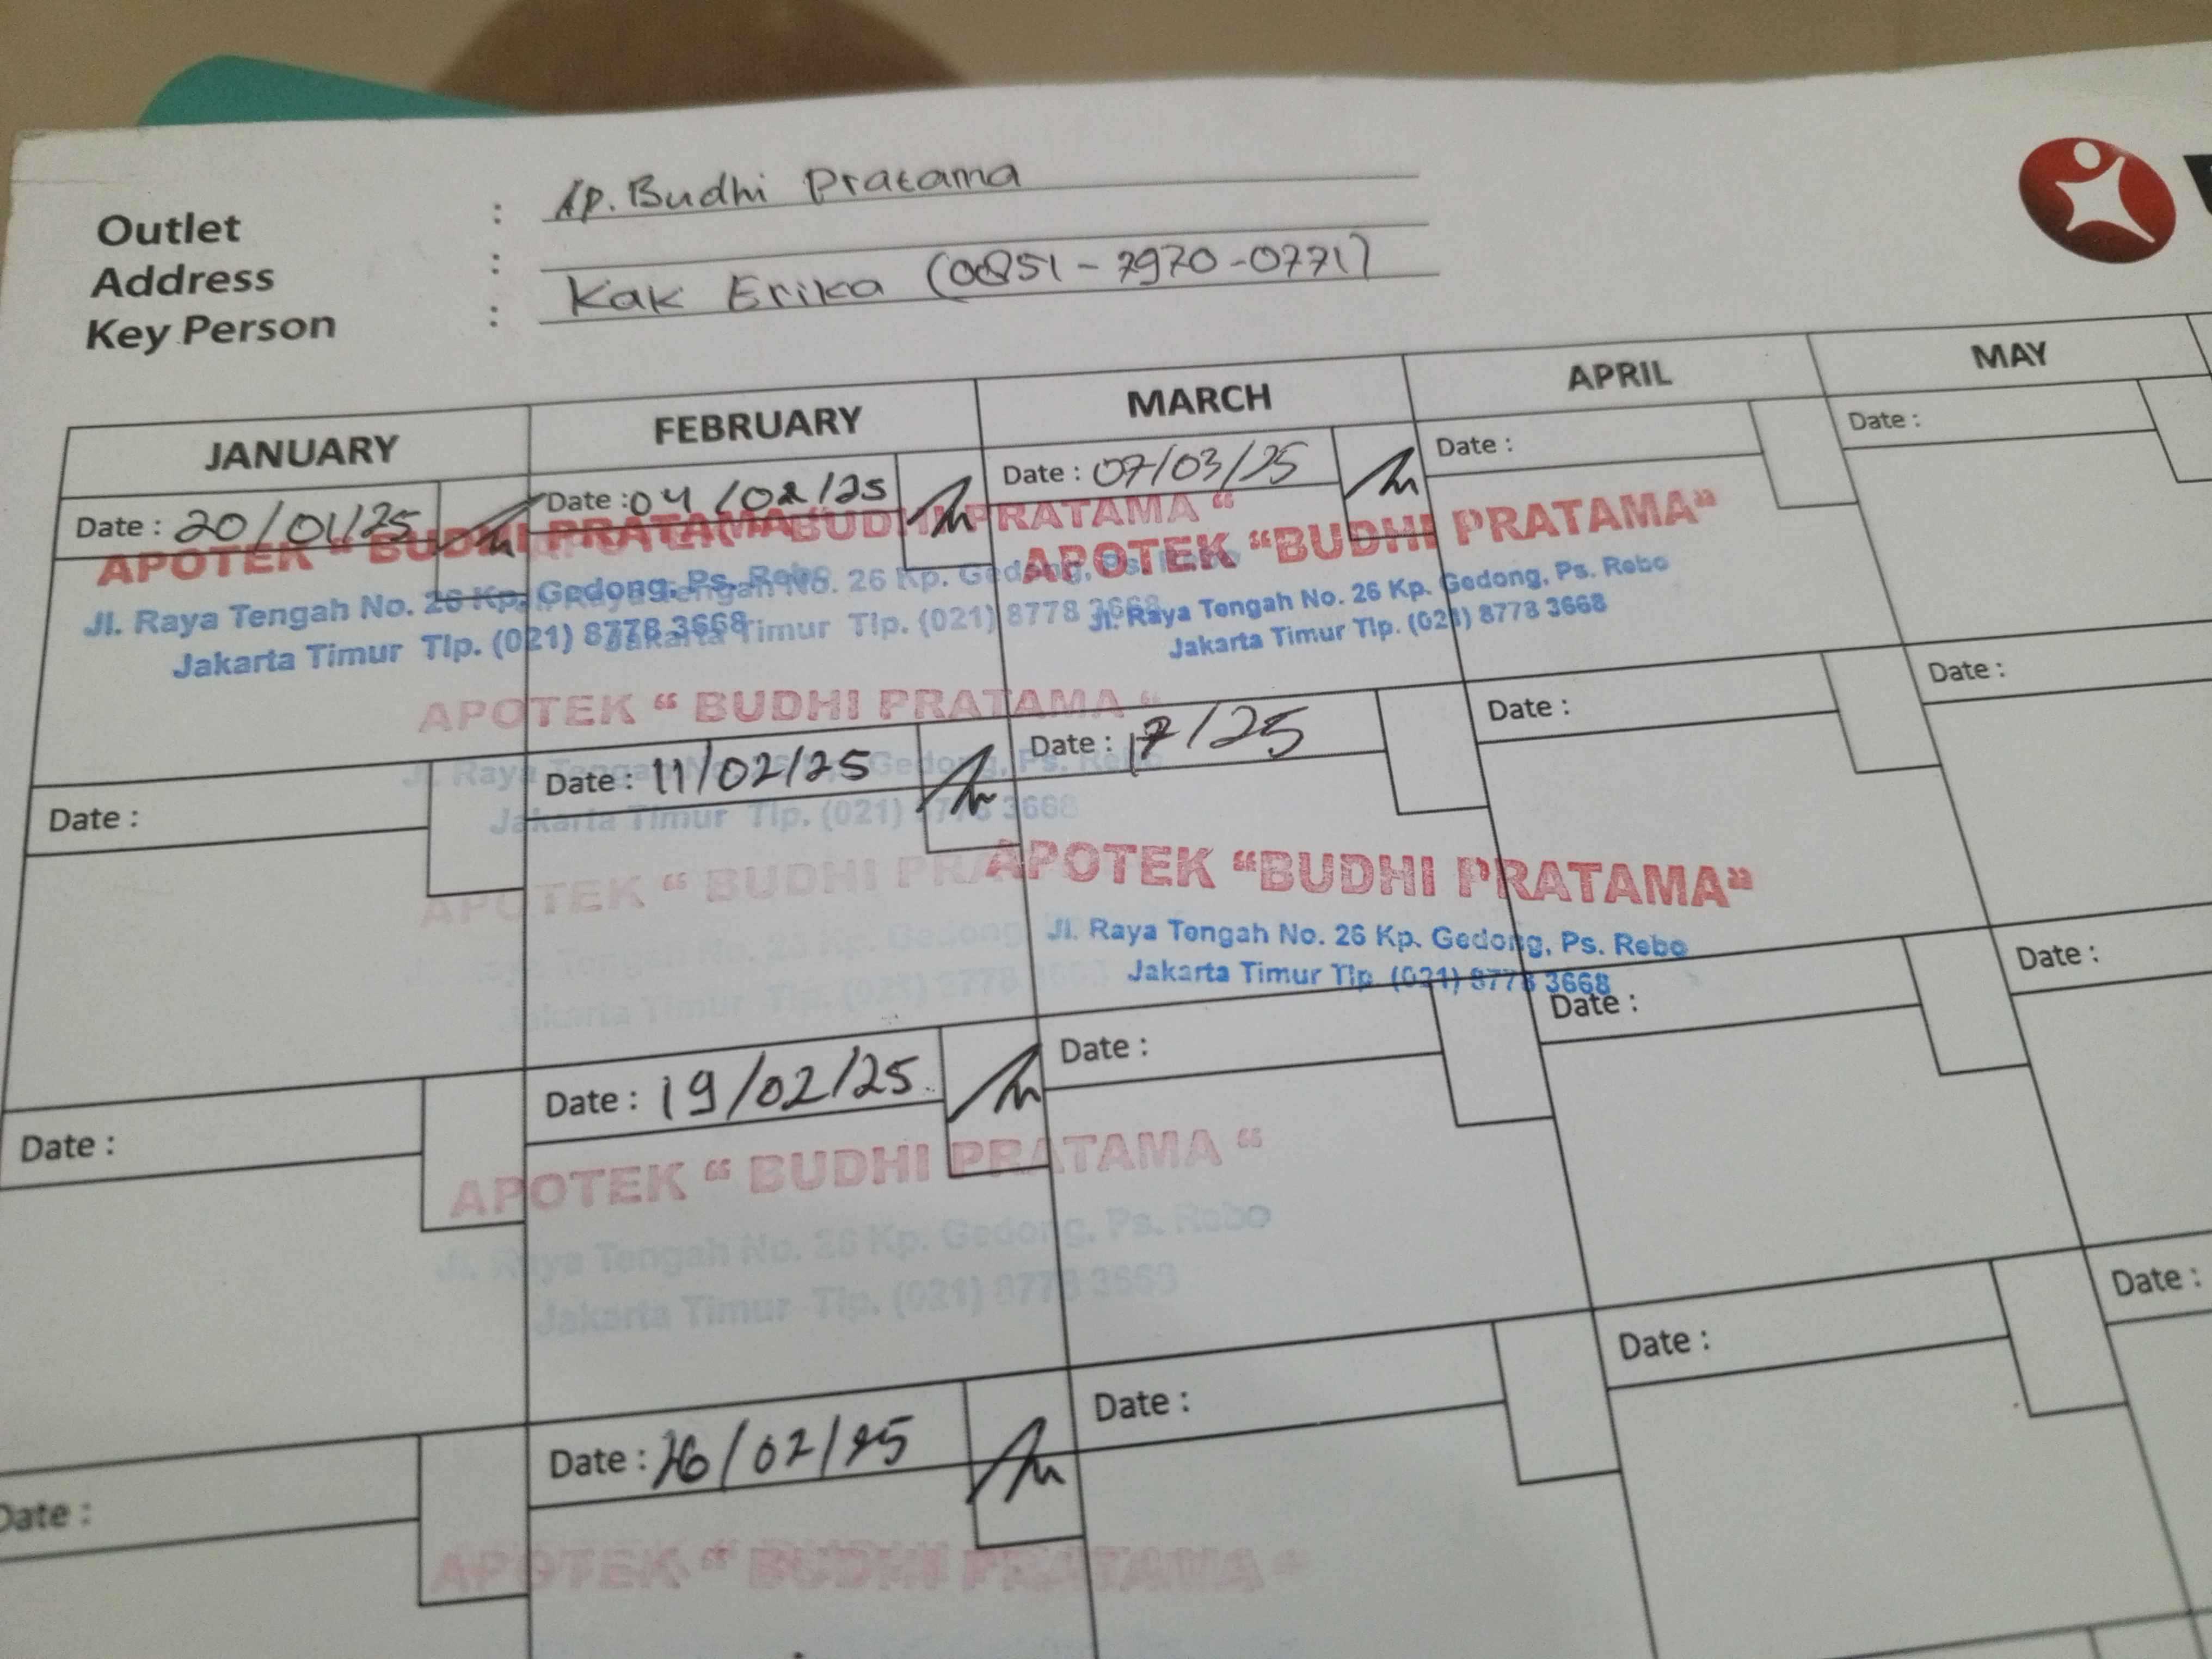 Outlet : Ap. Budhi Pratama
Address :
Key Person : Kak Erika (0851-7970-0771)
JANUARY FEBRUARY MARCH APRIL MAY
Date : 20/01/25 Date : 04/02/25 Date : 07/03/25 Date : Date :
APOTEK " BUDHI PRATAMA BUDHI PRATAMA "
Jl. Raya Tengah No. 26 Kp. Gedong, Ps. Rebo No. 26 Kp. Gedong, Ps. Rebo
Jakarta Timur Tlp. (021) 8778 3668 Jakarta Timur Tlp. (021) 8778 3668
APOTEK "BUDHI PRATAMA"
Jl. Raya Tengah No. 26 Kp. Gedong, Ps. Rebo
Jakarta Timur Tlp. (021) 8778 3668
APOTEK " BUDHI PRATAMA "
Date : Date : 11/02/25 Date : 17/25 Date : Date :
Jl. Raya Tengah No. 26 Kp. Gedong, Ps. Rebo
Jakarta Timur Tlp. (021) 8778 3668
APOTEK " BUDHI PRATAMA
Jl. Raya Tengah No. 26 Kp. Gedong,
Jakarta Timur Tlp. (021) 8778 3668
APOTEK "BUDHI PRATAMA"
Jl. Raya Tengah No. 26 Kp. Gedong, Ps. Rebo
Jakarta Timur Tlp. (021) 8778 3668
Date : Date : 19/02/25 Date : Date : Date :
APOTEK " BUDHI PRATAMA "
Jl. Raya Tengah No. 26 Kp. Gedong, Ps. Rebo
Jakarta Timur Tlp. (021) 8778 3668
Date : Date : 26/02/25 Date : Date : Date :
APOTEK " BUDHI PRATAMA "